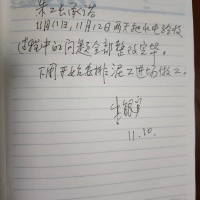 朱工长承诺
11月11日,11月12日两天把水电验收
过程中的问题全部整改完毕。
下周开始安排泥工进场做工。
11.10.